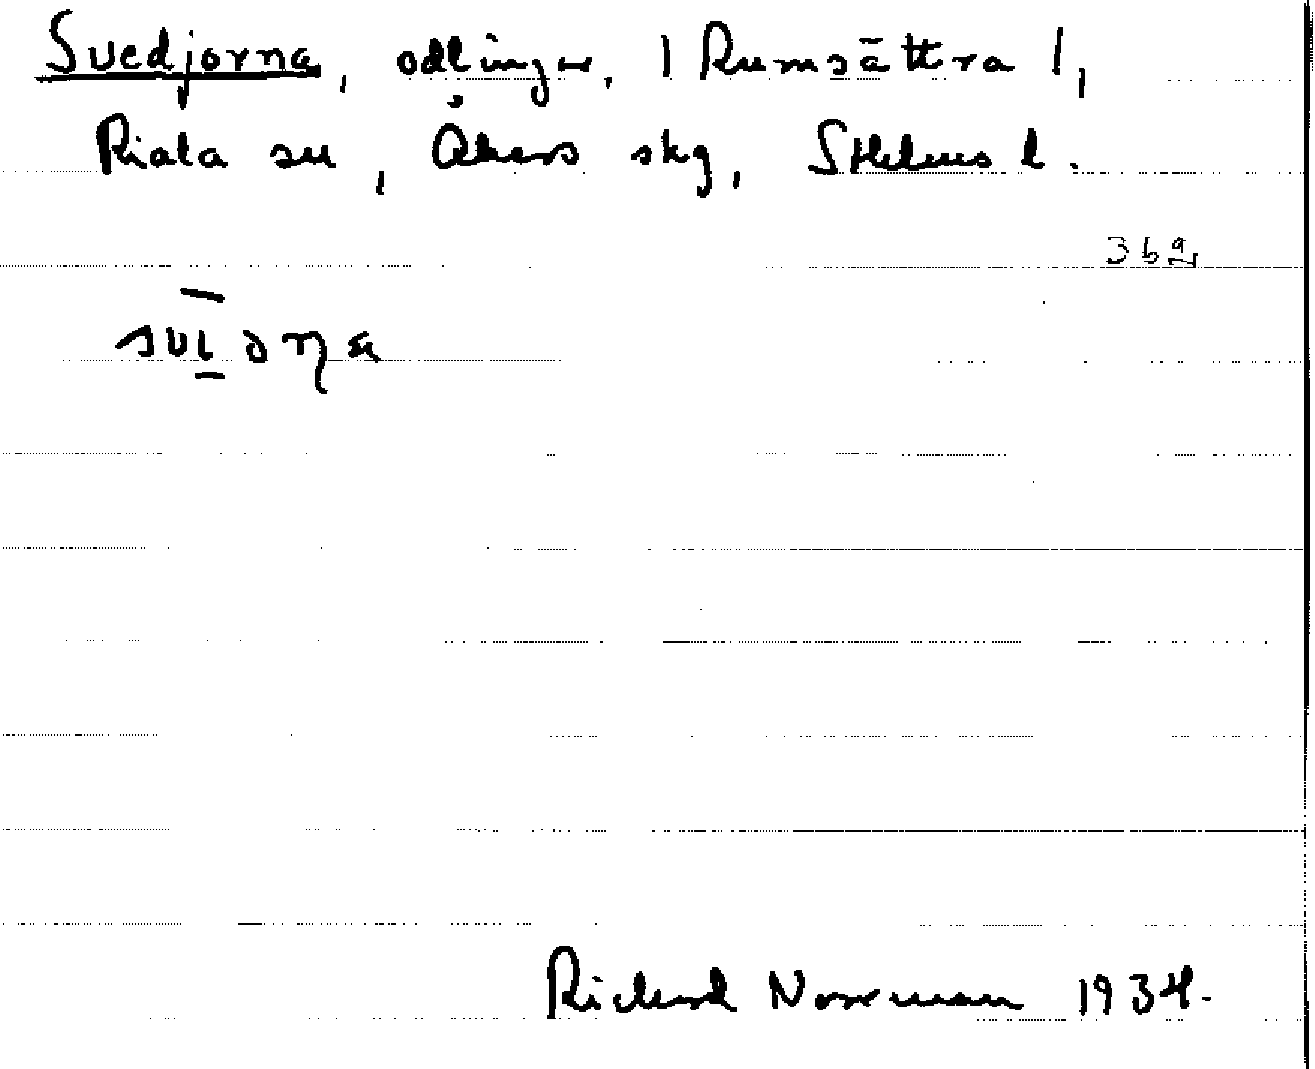 Svedjorna, odlingar, | Rumsättra |,
Riala sn, Åkers skg, Sthlms l.
362
Richard Norrman 1934.